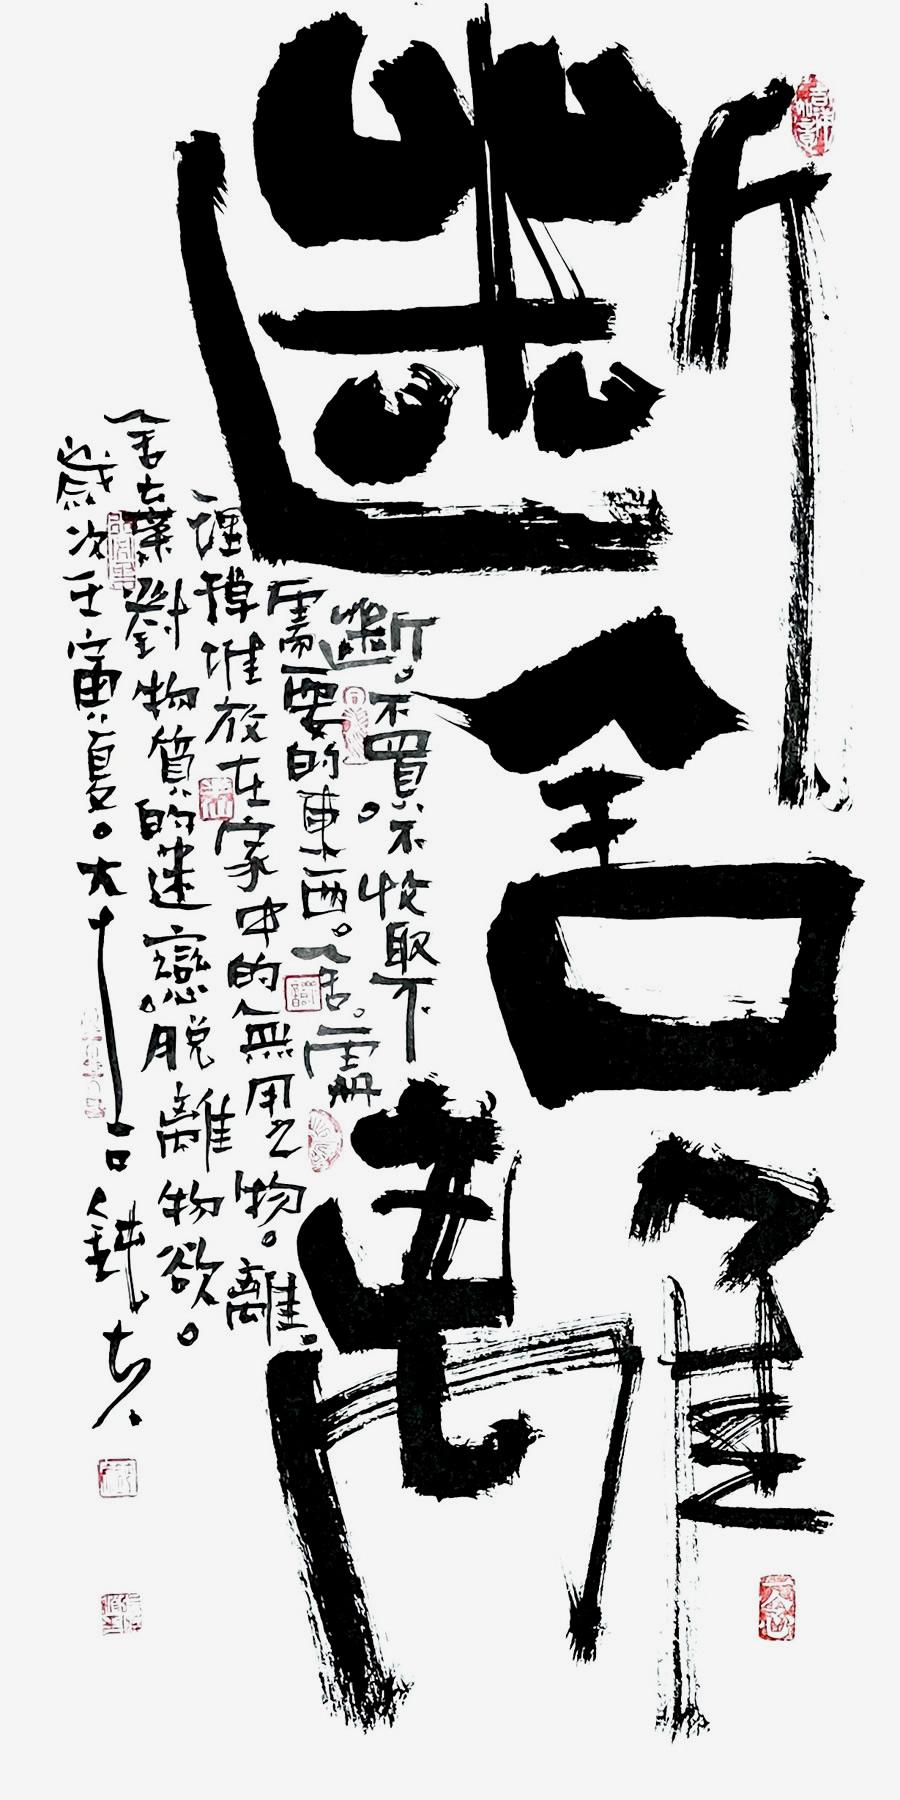 斷舍離
斷。不買。不收取不
需要的東西。舍。處
理掉堆放在家中的無用之物。離。
舍去棄對物質的迷戀。脫離物欲。
歲次壬寅夏。大